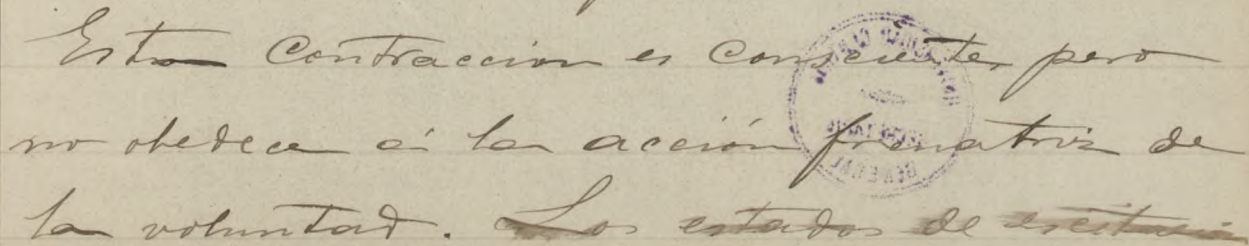 Esta Contraccion es consciente, pero
no obedece á la acción frenatriz de
la voluntad. Los estados de escitacion